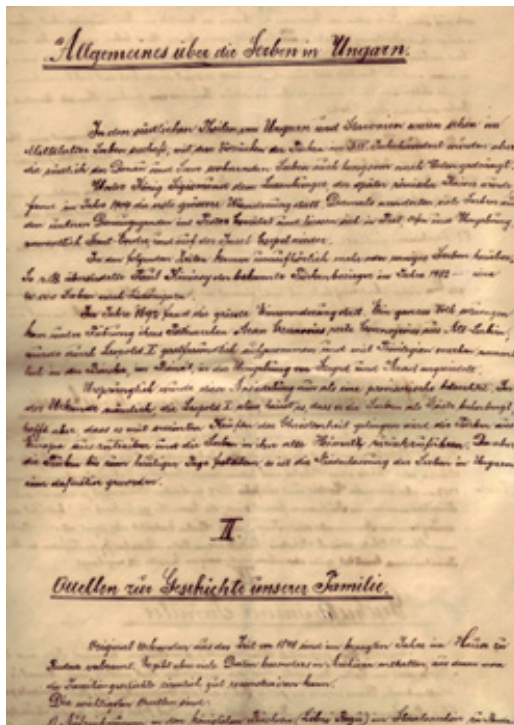 Allgemeines über die Serben in Ungarn.
In den südlichen Teilen von Ungarn und Slavonien waren schon im
Mittelalter Serben mit dem der Türken im Jahrhundert wurden aber
die südlich der Donau und Save wohnenden Serben auch nach Norden gedrängt.
Unter König Sigismund dem Luxemburger, der später römischer Kaiser wurde
fand im Jahre die erste grössere Wanderung statt. Damals wanderten viele Serben aus
den unteren Donaugegenden ins und liessen sich in Pest, Ofen und Umgebung
Sankt und auf der Insel Csepel nieder.
In den folgenden Zeiten kamen ununterbrochen mehr oder weniger Serben herüber.
So z.B. übersiedelte Paul Kinizsy der bekannte Türkenbesieger im Jahre eine
Serben nach Südungarn.
Im Jahre fand die grösste Einwanderung statt. Ein ganzes Volk
kam unter Führung ihres Patriarchen Arsen aus Alt Serbien,
wurde durch Leopold I. gastfreundlich aufgenommen und mit Privilegien versehen
in der Bácska, im Banat, in der Umgebung von Szeged und Arad angesiedelt.
Ursprünglich wurde diese Ansiedelung nur als eine provisorische betrachtet. In
der Urkunde nämlich, die Leopold I. heisst es, dass er die Serben als Gäste beherbergt,
hofft aber, dass es mit vereinten Kräften der Christenheit gelingen wird die Türken aus
Europa zu und die Serben in ihre alte Heimat zurückzuführen. Da aber
die Türken bis zum heutigen Tage ist die Niederlassung der Serben in Ungarn
eine definitive geworden.
II.
Quellen zur Geschichte unserer Familie.
Original Urkunden aus der Zeit von sind im Jahre im Hause zu
Budan verbrannt. Es gibt aber viele Daten besonders in Archiven enthalten, aus denen man
die Familiengeschichte ziemlich gut rekonstruieren kann.
Die wichtigsten Quellen sind:
in den königlichen Büchern (Libri Regii) im Staatsarchiv